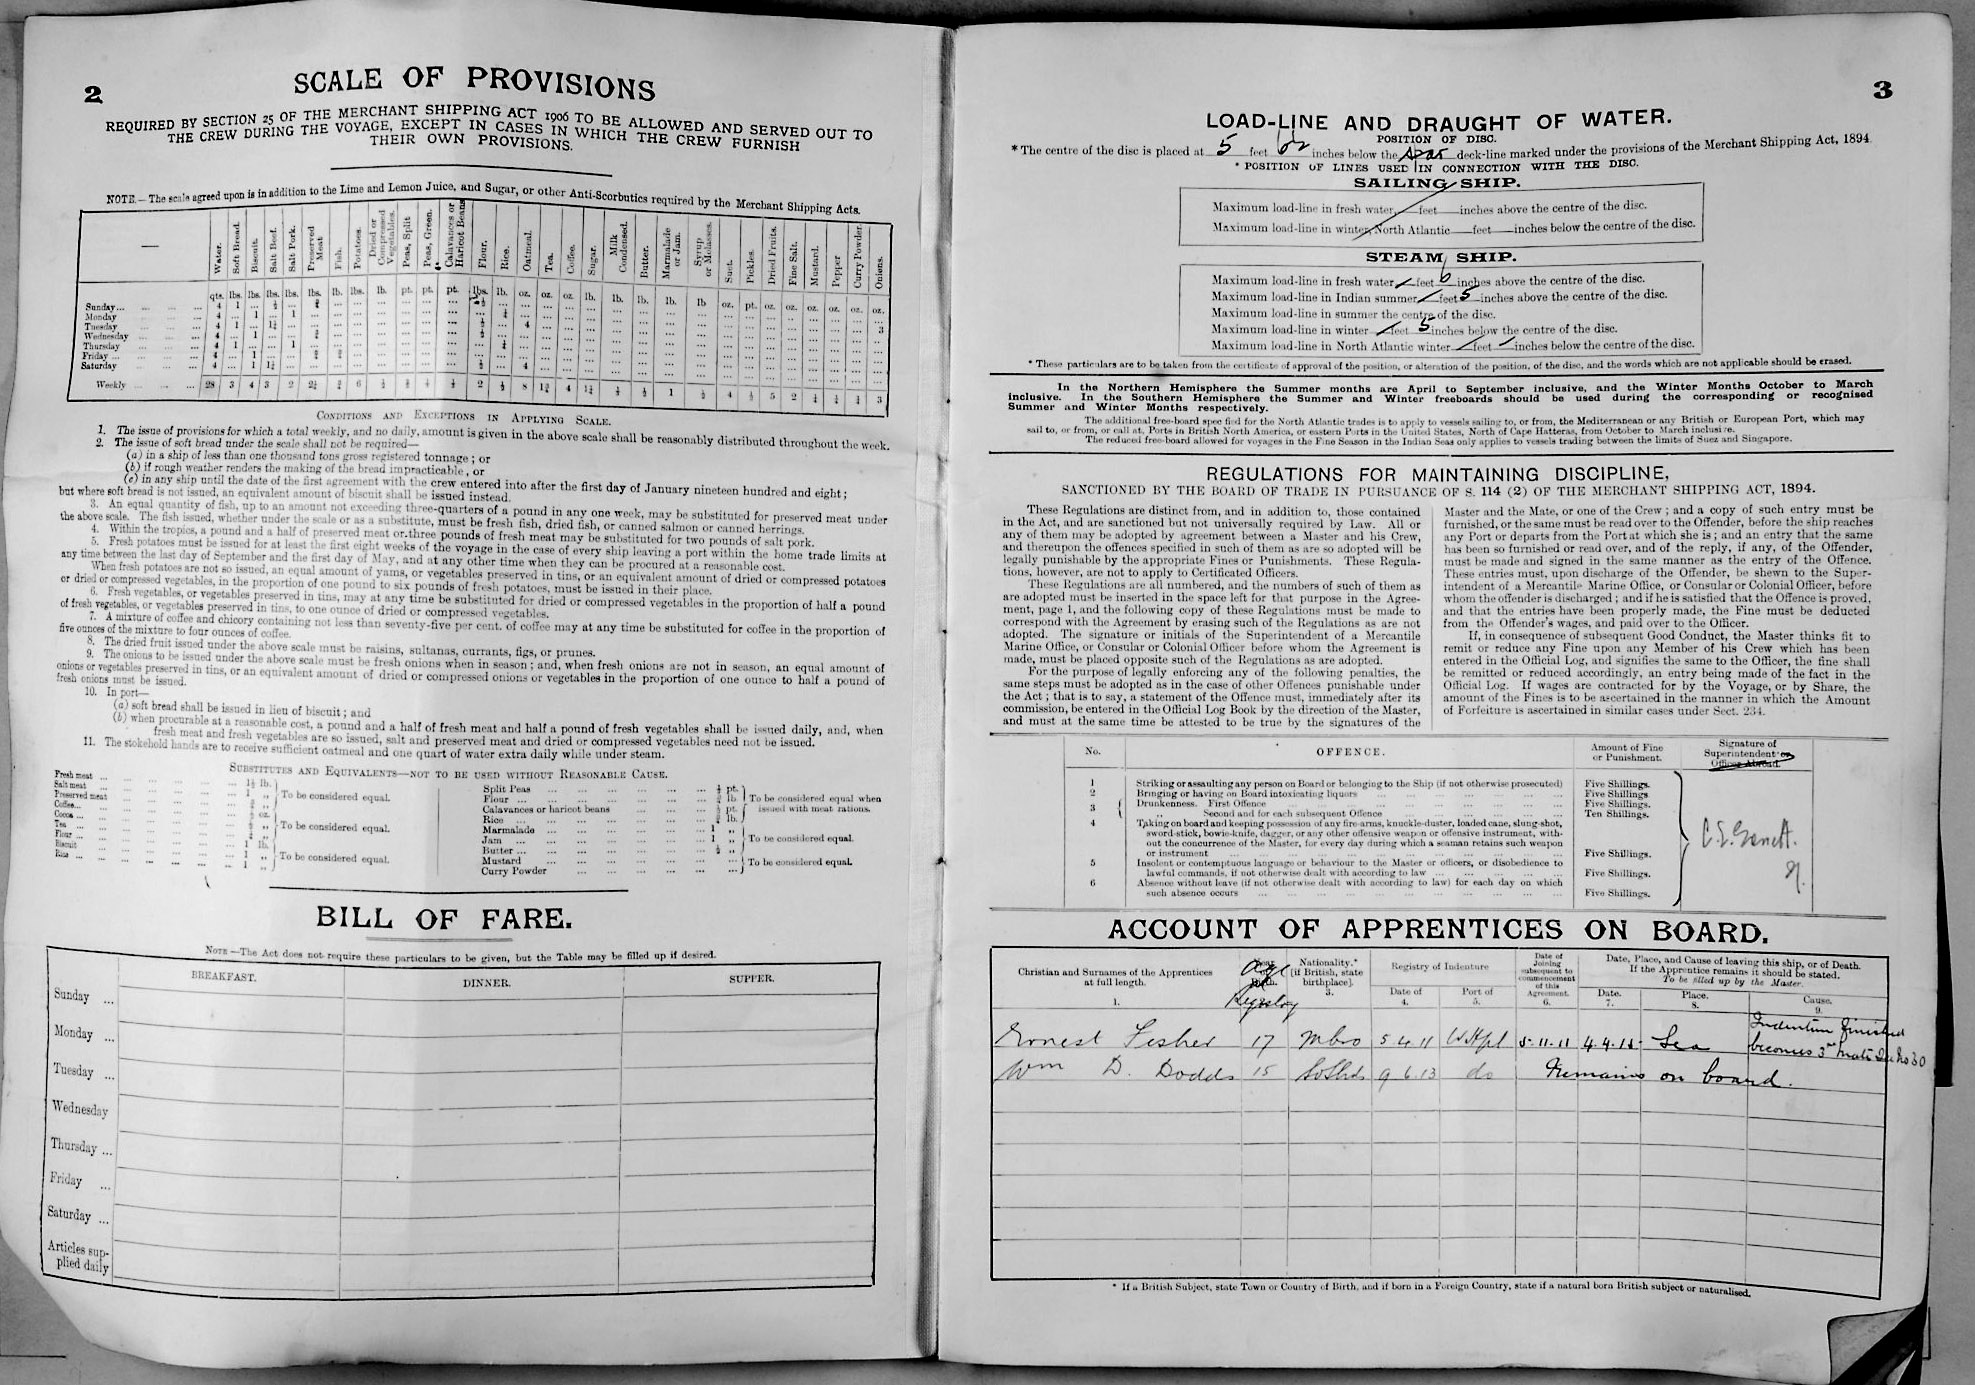 2
SCALE OF PROVISIONS
REQUIRED BY SECTION 25 OF THE MERCHANT SHIPPING ACT 1906 TO BE ALLOWED AND SERVED OUT TO
THE CREW DURING THE VOYAGE, EXCEPT IN CASES IN WHICH THE CREW FURNISH
THEIR OWN PROVISIONS.
NOTE.—The scale agreed upon is in addition to the Lime and Lemon Juice, and Sugar, or other Anti-Scorbutics required by the Merchant Shipping Acts.
Water. Soft Bread. Biscuit. Salt Beef. Salt Pork. Preserved Meat. Fish. Potatoes. Dried or Compressed Vegetables. Peas, Split Peas, Green. Calavances or Haricot Beans. Flour. Rice. Oatmeal. Tea. Coffee. Sugar. Milk Condensed. Butter. Marmalade or Jam. Syrup or Molasses. Suet. Pickles. Dried Fruits. Fine Salt. Mustard. Pepper Curry Powder. Onions.
qts. lbs. lbs. lbs. lbs. lbs. lb. lbs. lb. pt. pt. pt. lbs. lb. oz. oz. oz. lb. lb. lb. lb. lb oz. pt. oz. oz. oz. oz. oz. oz.
Sunday... 4 1
Monday 4 1 1
Tuesday 4 1 1¼ 4
Wednesday 4 1 3
Thursday 4 1 1
Friday ... 4 1
Saturday 4 1 1¼ 4
Weekly 28 3 4 3 2 2¼ ¾ 6 ½ 2 ½ 8 1¾ 4 1¼ 1 ½ 4 ½ 5 2 ¼ ¼ ¼ 3
CONDITIONS AND EXCEPTIONS IN APPLYING SCALE.
1. The issue of provisions for which a total weekly, and no daily, amount is given in the above scale shall be reasonably distributed throughout the week.
2. The issue of soft bread under the scale shall not be required—
(a) in a ship of less than one thousand tons gross registered tonnage; or
(b) if rough weather renders the making of the bread impracticable, or
(c) in any ship until the date of the first agreement with the crew entered into after the first day of January nineteen hundred and eight;
but where soft bread is not issued, an equivalent amount of biscuit shall be issued instead.
3. An equal quantity of fish, up to an amount not exceeding three-quarters of a pound in any one week, may be substituted for preserved meat under
the above scale. The fish issued, whether under the scale or as a substitute, must be fresh fish, dried fish, or canned salmon or canned herrings.
4. Within the tropics, a pound and a half of preserved meat or three pounds of fresh meat may be substituted for two pounds of salt pork.
5. Fresh potatoes must be issued for at least the first eight weeks of the voyage in the case of every ship leaving a port within the home trade limits at
any time between the last day of September and the first day of May, and at any other time when they can be procured at a reasonable cost.
When fresh potatoes are not so issued, an equal amount of yams, or vegetables preserved in tins, or an equivalent amount of dried or compressed potatoes
or dried or compressed vegetables, in the proportion of one pound to six pounds of fresh potatoes, must be issued in their place.
6. Fresh vegetables, or vegetables preserved in tins, may at any time be substituted for dried or compressed vegetables in the proportion of half a pound
of fresh vegetables, or vegetables preserved in tins, to one ounce of dried or compressed vegetables.
7. A mixture of coffee and chicory containing not less than seventy-five per cent. of coffee may at any time be substituted for coffee in the proportion of
five ounces of the mixture to four ounces of coffee.
8. The dried fruit issued under the above scale must be raisins, sultanas, currants, figs, or prunes.
9. The onions to be issued under the above scale must be fresh onions when in season; and, when fresh onions are not in season, an equal amount of
onions or vegetables preserved in tins, or an equivalent amount of dried or compressed onions or vegetables in the proportion of one ounce to half a pound of
fresh onions must be issued.
10. In port—
(a) soft bread shall be issued in lieu of biscuit; and
(b) when procurable at a reasonable cost, a pound and a half of fresh meat and half a pound of fresh vegetables shall be issued daily, and, when
fresh meat and fresh vegetables are so issued, salt and preserved meat and dried or compressed vegetables need not be issued.
11. The stokehold hands are to receive sufficient oatmeal and one quart of water extra daily while under steam.
SUBSTITUTES AND EQUIVALENTS—NOT TO BE USED WITHOUT REASONABLE CAUSE.
Fresh meat ... 1½ lb.
Salt meat ... 1 „ To be considered equal.
Preserved meat ... ¾ „
Coffee... ½ oz.
Cocoa ... „ To be considered equal.
Tea ... ¼ „
Flour ... 1 lb.
Biscuit ... 1 „ To be considered equal.
Rice ... 1 „
Split Peas ... pt.
Flour ... lb. To be considered equal when
Calavances or haricot beans ... pt. issued with meat rations.
Rice ... lb.
Marmalade ... 1 „
Jam ... 1 „ To be considered equal.
Butter ... ½ „
Mustard ... To be considered equal.
Curry Powder ...
BILL OF FARE.
NOTE—The Act does not require these particulars to be given, but the Table may be filled up if desired.
BREAKFAST. DINNER. SUPPER.
Sunday ...
Monday ...
Tuesday ...
Wednesday
Thursday ...
Friday ...
Saturday ...
Articles sup-
plied daily
3
LOAD-LINE AND DRAUGHT OF WATER.
POSITION OF DISC.
* The centre of the disc is placed at 5 feet inches below the spar deck-line marked under the provisions of the Merchant Shipping Act, 1894
* POSITION OF LINES USED IN CONNECTION WITH THE DISC.
SAILING SHIP.
Maximum load-line in fresh water, feet inches above the centre of the disc.
Maximum load-line in winter, North Atlantic feet inches below the centre of the disc.
STEAM SHIP.
Maximum load-line in fresh water feet 6 inches above the centre of the disc.
Maximum load-line in Indian summer feet 5 inches above the centre of the disc.
Maximum load-line in summer the centre of the disc.
Maximum load-line in winter feet 5 inches below the centre of the disc.
Maximum load-line in North Atlantic winter feet inches below the centre of the disc.
* These particulars are to be taken from the certificate of approval of the position, or alteration of the position, of the disc, and the words which are not applicable should be erased.
In the Northern Hemisphere the Summer months are April to September inclusive, and the Winter Months October to March
inclusive. In the Southern Hemisphere the Summer and Winter freeboards should be used during the corresponding or recognised
Summer and Winter Months respectively.
The additional free-board specified for the North Atlantic trades is to apply to vessels sailing to, or from, the Mediterranean or any British or European Port, which may
sail to, or from, or call at, Ports in British North America, or eastern Ports in the United States, North of Cape Hatteras, from October to March inclusive.
The reduced free-board allowed for voyages in the Fine Season in the Indian Seas only applies to vessels trading between the limits of Suez and Singapore.
REGULATIONS FOR MAINTAINING DISCIPLINE,
SANCTIONED BY THE BOARD OF TRADE IN PURSUANCE OF S. 114 (2) OF THE MERCHANT SHIPPING ACT, 1894.
These Regulations are distinct from, and in addition to, those contained
in the Act, and are sanctioned but not universally required by Law. All or
any of them may be adopted by agreement between a Master and his Crew,
and thereupon the offences specified in such of them as are so adopted will be
legally punishable by the appropriate Fines or Punishments. These Regula-
tions, however, are not to apply to Certificated Officers.
These Regulations are all numbered, and the numbers of such of them as
are adopted must be inserted in the space left for that purpose in the Agree-
ment, page 1, and the following copy of these Regulations must be made to
correspond with the Agreement by erasing such of the Regulations as are not
adopted. The signature or initials of the Superintendent of a Mercantile
Marine Office, or Consular or Colonial Officer before whom the Agreement is
made, must be placed opposite such of the Regulations as are adopted.
For the purpose of legally enforcing any of the following penalties, the
same steps must be adopted as in the case of other Offences punishable under
the Act; that is to say, a statement of the Offence must, immediately after its
commission, be entered in the Official Log Book by the direction of the Master,
and must at the same time be attested to be true by the signatures of the
Master and the Mate, or one of the Crew; and a copy of such entry must be
furnished, or the same must be read over to the Offender, before the ship reaches
any Port or departs from the Port at which she is; and an entry that the same
has been so furnished or read over, and of the reply, if any, of the Offender,
must be made and signed in the same manner as the entry of the Offence.
These entries must, upon discharge of the Offender, be shewn to the Super-
intendent of a Mercantile Marine Office, or Consular or Colonial Officer, before
whom the offender is discharged; and if he is satisfied that the Offence is proved,
and that the entries have been properly made, the Fine must be deducted
from the Offender's wages, and paid over to the Officer.
If, in consequence of subsequent Good Conduct, the Master thinks fit to
remit or reduce any Fine upon any Member of his Crew which has been
entered in the Official Log, and signifies the same to the Officer, the fine shall
be remitted or reduced accordingly, an entry being made of the fact in the
Official Log. If wages are contracted for by the Voyage, or by Share, the
amount of the Fines is to be ascertained in the manner in which the Amount
of Forfeiture is ascertained in similar cases under Sect. 234.
No. OFFENCE. Amount of Fine or Punishment. Signature of Superintendent or Officer Abroad.
1 Striking or assaulting any person on Board or belonging to the Ship (if not otherwise prosecuted) Five Shillings.
2 Bringing or having on Board intoxicating liquors ... Five Shillings.
3 Drunkenness. First Offence ... Five Shillings.
„ Second and for each subsequent Offence ... Ten Shillings.
4 Taking on board and keeping possession of any fire-arms, knuckle-duster, loaded cane, slung-shot,
sword-stick, bowie-knife, dagger, or any other offensive weapon or offensive instrument, with-
out the concurrence of the Master, for every day during which a seaman retains such weapon
or instrument ... Five Shillings.
5 Insolent or contemptuous language or behaviour to the Master or officers, or disobedience to
lawful commands, if not otherwise dealt with according to law ... Five Shillings.
6 Absence without leave (if not otherwise dealt with according to law) for each day on which
such absence occurs ... Five Shillings.
ACCOUNT OF APPRENTICES ON BOARD.
Christian and Surnames of the Apprentices at full length. 1.
Year Birth. Age
Nationality.* [if British, state birthplace]. 3.
Registry of Indenture Date of 4. Port of 5.
Date of Joining subsequent to commencement of this Agreement. 6.
Date, Place, and Cause of leaving this ship, or of Death.
If the Apprentice remains it should be stated.
To be filled up by the Master.
Date. 7. Place. 8. Cause. 9.
Ernest Fisher 17 Mbro 5 4 11 W Hpl 5.11.11 4.4.15 Sea Indenture finished
becomes 3rd Mate See No 30
Wm D. Dodds 15 So Shds 9 6 13 do Remains on board.
* If a British Subject, state Town or Country of Birth, and if born in a Foreign Country, state if a natural born British subject or naturalised.